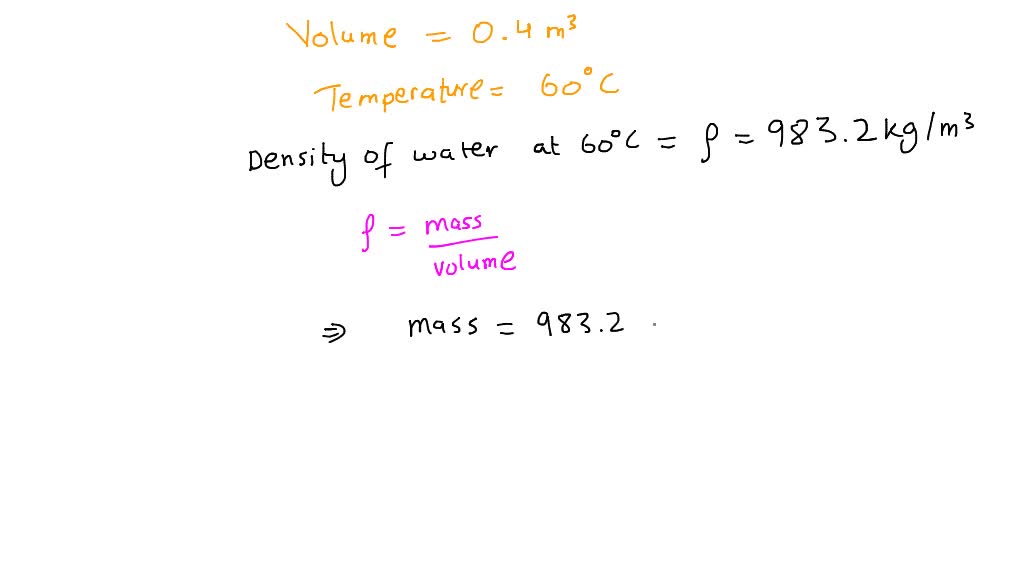 Volume = 0.4 m³
Temperature = 60°C
Density of water at 60°C = ρ = 983.2 kg/m³
ρ = mass
volume
⇒ mass = 983.2 .